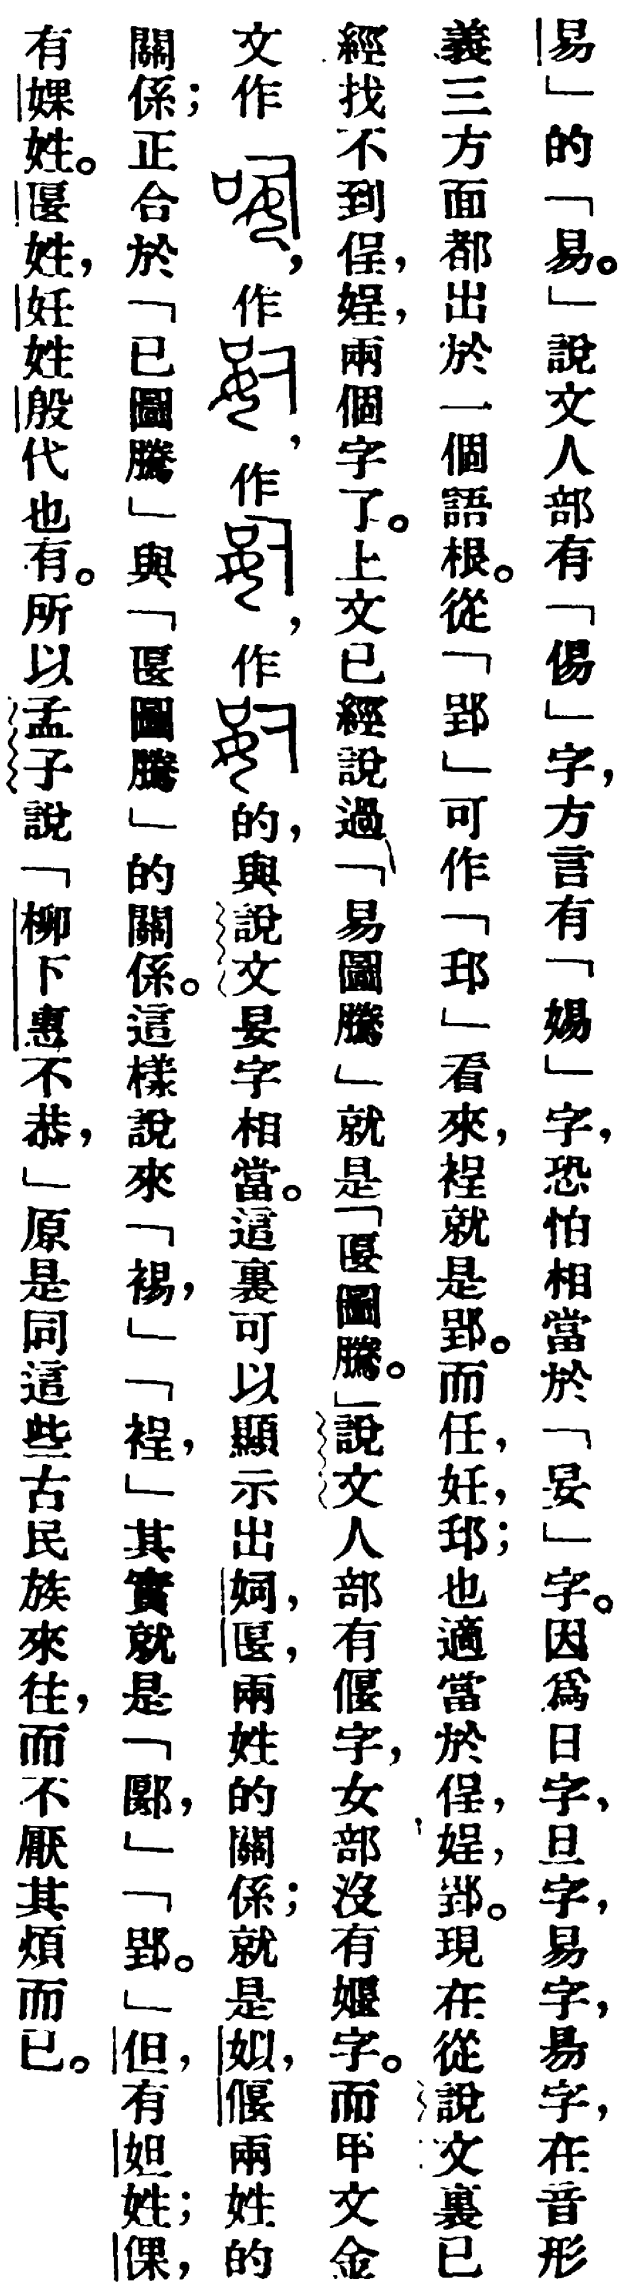 易」的「易。」說文人部有「偒」字，方言有「婸」字，恐怕相當於「妟」字。因爲日字，旦字，易字，昜字，在音形
義三方面都出於一個語根。從「郢」可作「邼」看來，裎就是郢。而任，妊，邼；也適當於侱，娙，郢。現在從說文裏已
經找不到侱，娙，兩個字了。上文已經說過「易圖騰」就是「匽圖騰。」說文人部有偃字，女部沒有㛪字。而甲文金
文作，作，作，作的，與說文妟字相當。這裏可以顯示出姛，匽，兩姓的關係；就是姒，偃兩姓的
關係；正合於「已圖騰」與「匽圖騰」的關係。這樣說來「裼，」「裎，」其實就是「郾，」「郢。」但，有妲姓；倮，
有婐姓。匽姓，妊姓殷代也有。所以孟子說「柳下惠不恭，」原是同這些古民族來往，而不厭其煩而已。